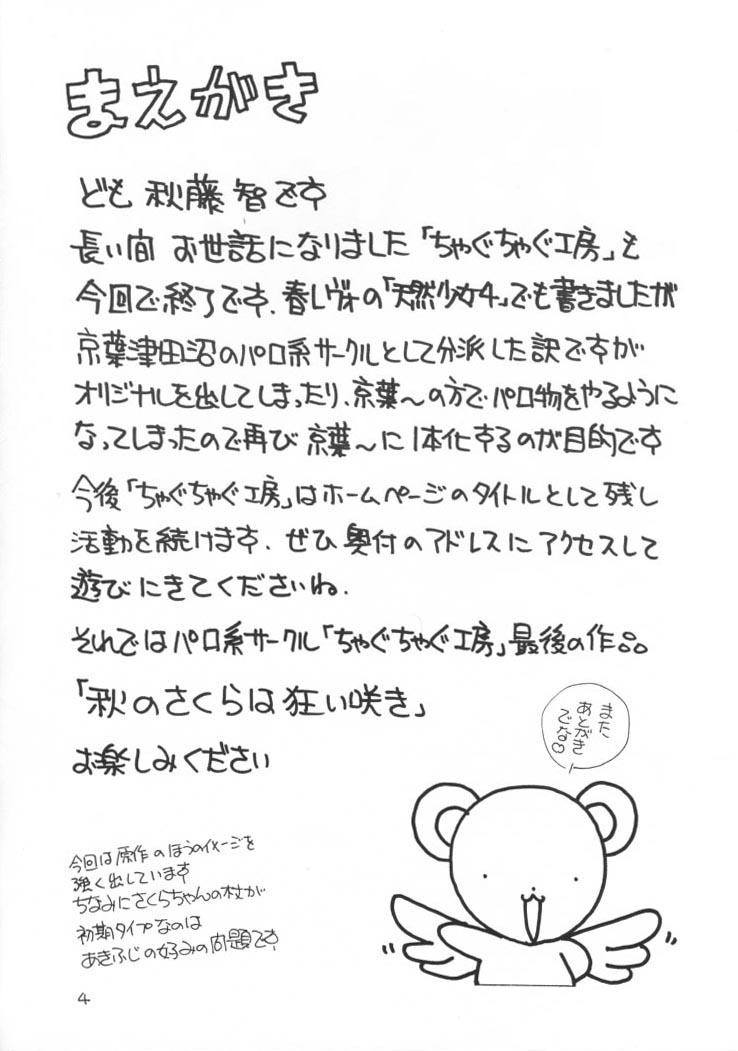 まえがき
ども 秋藤 智です
長い間 お世話になりました「ちゃぐちゃぐ工房」も
今回で終了です.春レヴォの「天然少女4」でも書きましたが
京葉津田沼のパロ系サークルとして分派した訳ですが
オリジナルを出してしまったり、京葉〜の方でパロ物をやるように
なってしまったので再び 京葉〜に1本化するのが目的です
今後「ちゃぐちゃぐ工房」はホームページのタイトルとして残し
活動を続けます. ぜひ 奥付のアドレスにアクセスして
遊びにきてくださいね.
それではパロ系サークル「ちゃぐちゃぐ工房」最後の作品
「秋のさくらは狂い咲き」
お楽しみください
また
あとがき
でな♡
今回は原作のほうのイメージを
強く出しています
ちなみにさくらちゃんの杖が
初期タイプなのは
あきふじの好みの問題です
4